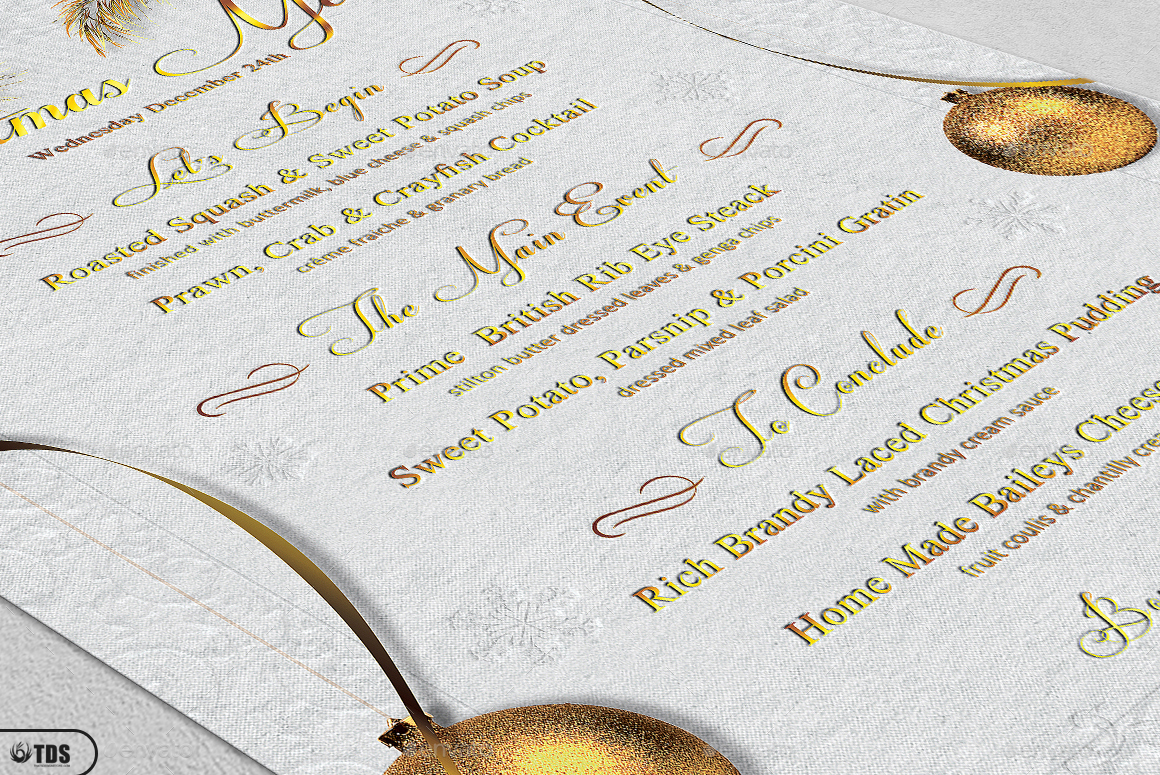 tmas
Wednesday December 24th
Let's Begin
Roasted Squash & Sweet Potato Soup
finished with buttermilk, blue cheese & squash chips
Prawn, Crab & Crayfish Cocktail
crème fraiche & granary bread
The Main Event
Prime British Rib Eye Steack
stilton butter dressed leaves & genga chips
Sweet Potato, Parsnip & Porcini Gratin
dressed mixed leaf salad
To Conclude
Rich Brandy Laced Christmas Pudding
with brandy cream sauce
Home Made Baileys Cheese
fruit coulis & chantilly crea
TDS